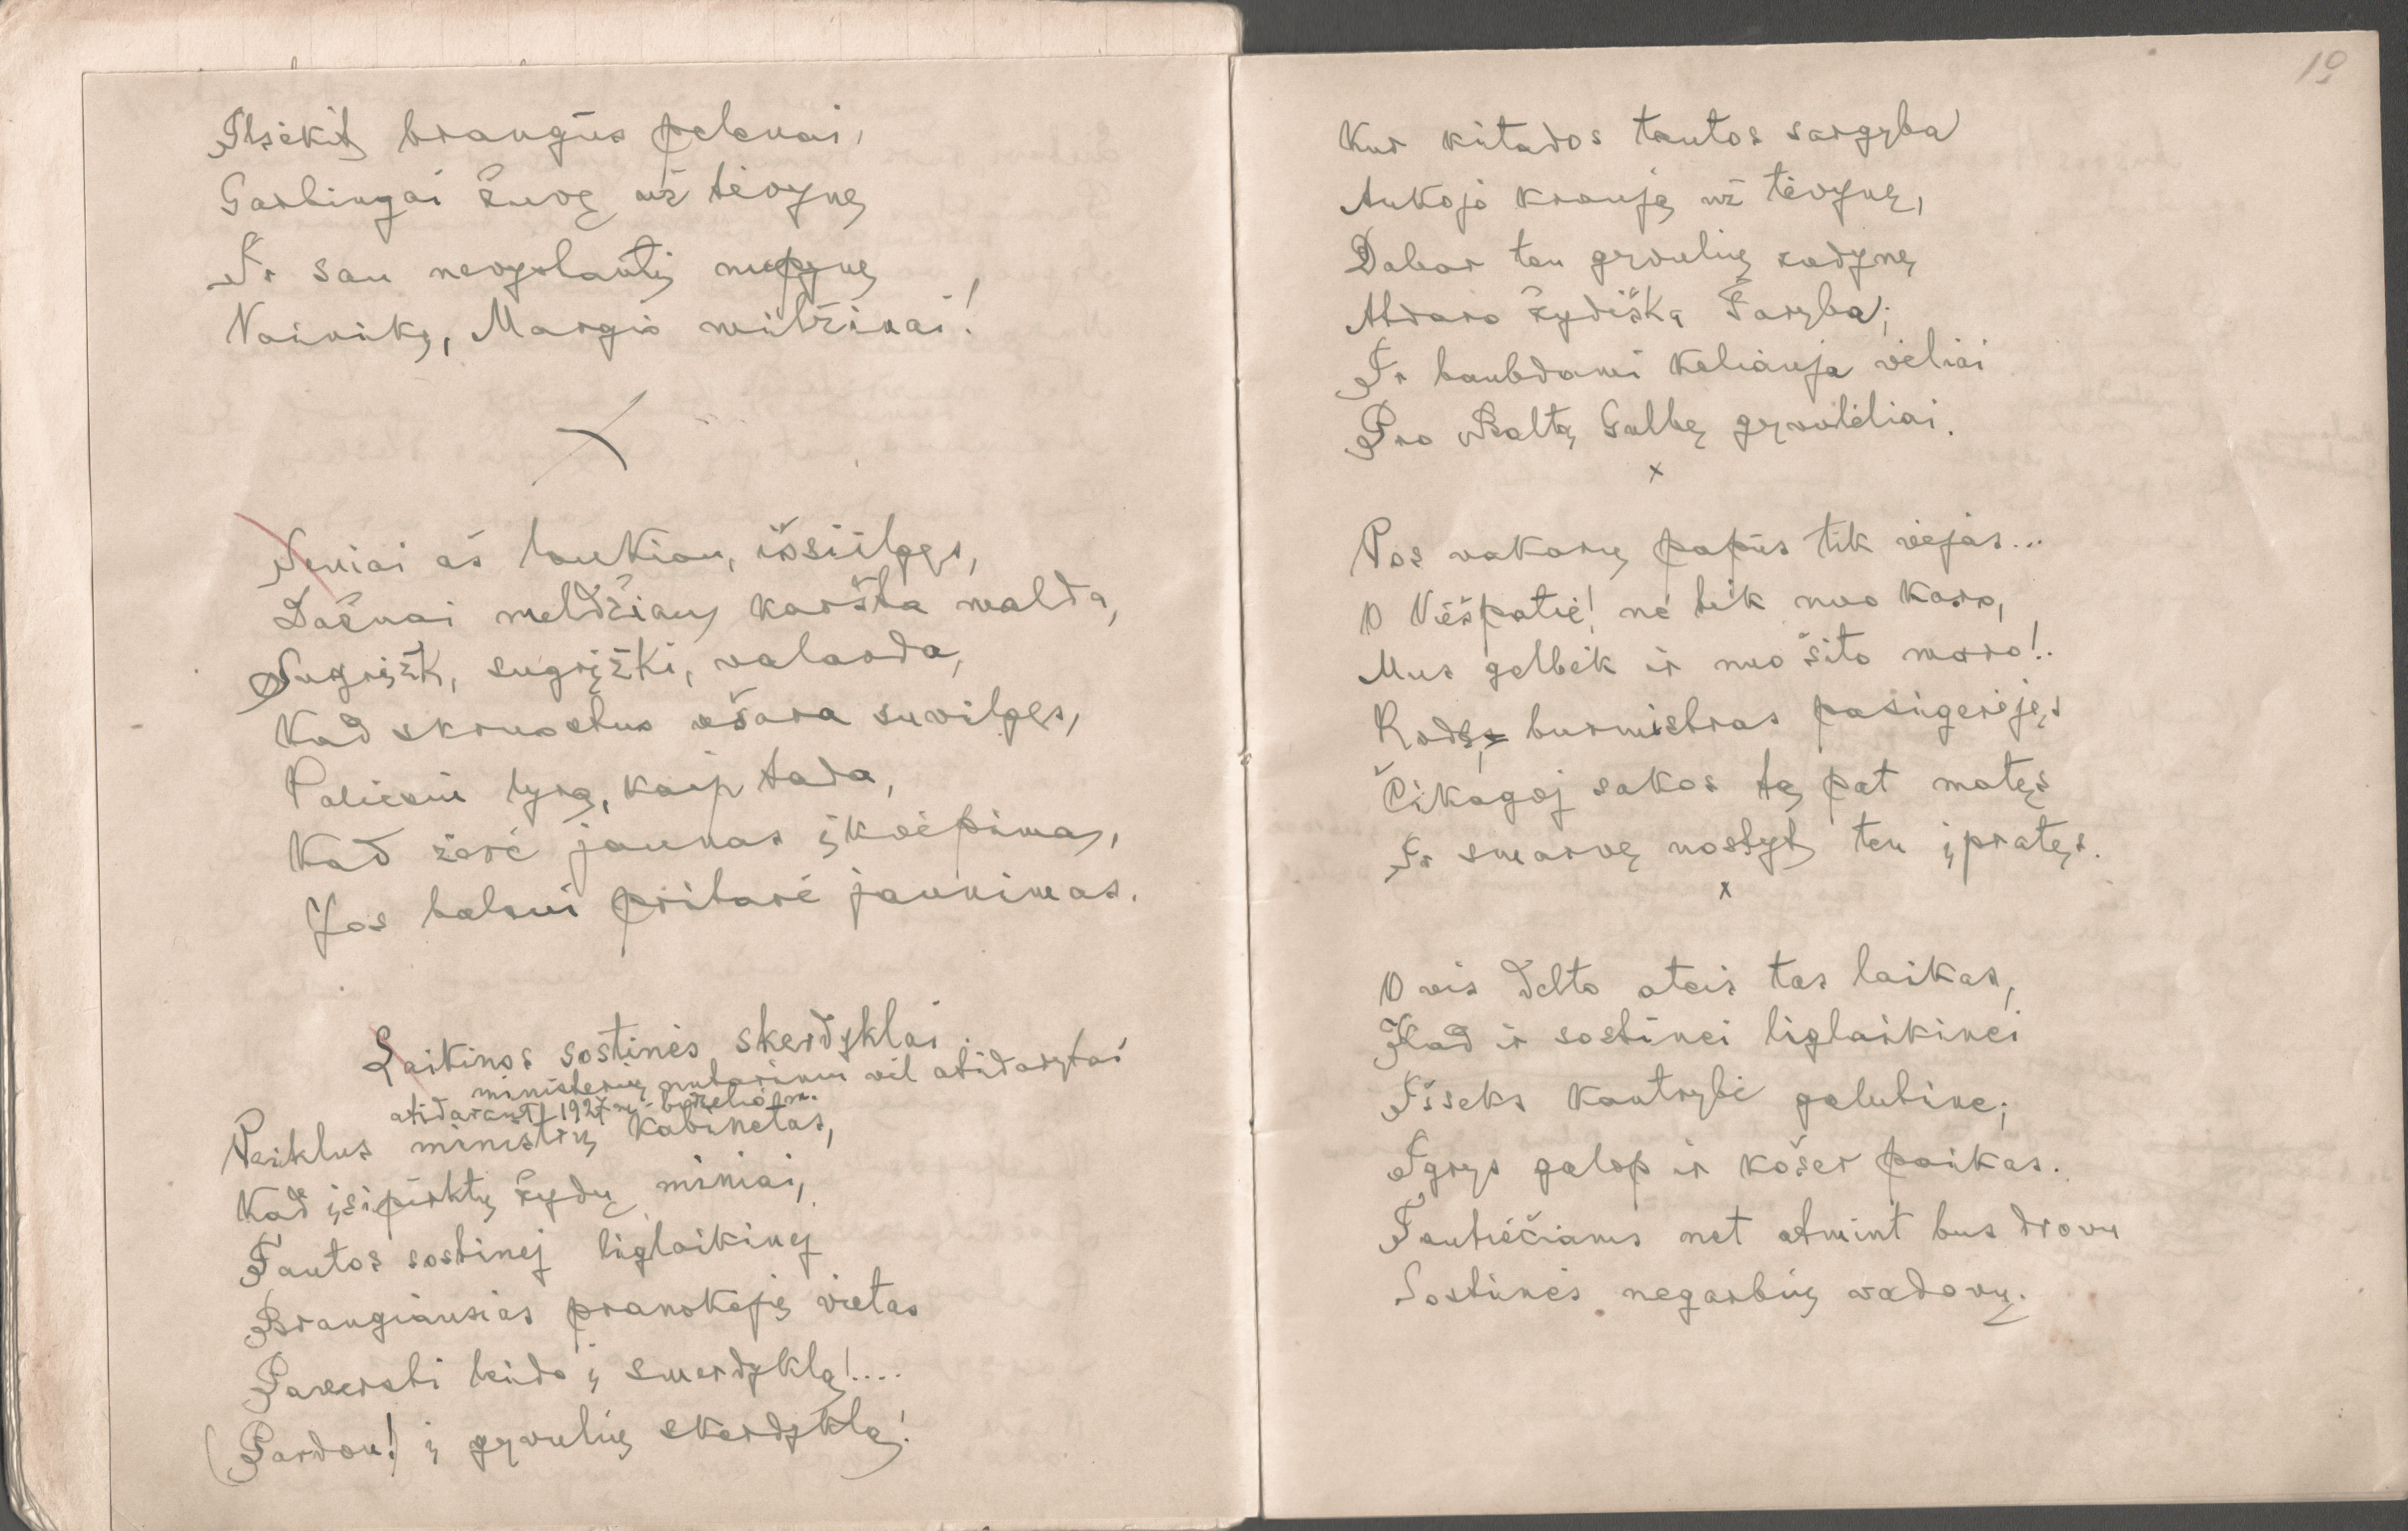 Ilsėkit, brangūs pelenai,
Garbingai žuvę už tėvynę
Ir sau nevystantį nupynę
Vainiką, Margio milžinai!
Seniai aš laukiau, išsiilgęs,
Dažnai meldžiau karšta malda,
Sugrįžk, sugrįžki, valanda,
Kad skruostus ašara suvilgęs,
Paliesiu lyrą, kaip tada,
Kad žėrė jaunas įkvėpimas,
Jos balsui pritarė jaunimas.
Laikinos sostinės skerdyklai
ministerių nutarimu vėl atidarytai
atidarant 1927 m. birželio m.
Veiklus ministrų kabinetas,
Kad įsipirktų žydų miniai,
Tautos sostinėj liglaikinėj
Brangiausias pranokėjų vietas
Paversti leido į smerdyklą!....
(Pardon! į gyvulių skerdyklą!)
19
Kur kitados tautos sargyba
Aukojo kraują už tėvynę,
Dabar ten gyvulių žudynę
Atdaro žydiška Taryba;
Ir baubdami keliauja vėliai
Pro Baltą Gulbę gyvulėliai.
x
Vos vakarų papūs tik vėjas...
O Viešpatie! ne tik nuo karo,
Mus gelbėk ir nuo šito maro!..
Rods, burmistras pasigerėjęs
Čikagoj sakos tą pat matęs
Ir smarvę uostyt ten įpratęs.
x
O vis dėlto ateis tas laikas,
Kad ir sostinei liglaikinei
Išseks kantrybė galutinė;
Įgrys galop ir košer paikas.
Tautiečiams net atmint bus drovu
Sostinės negarbių vadovų.